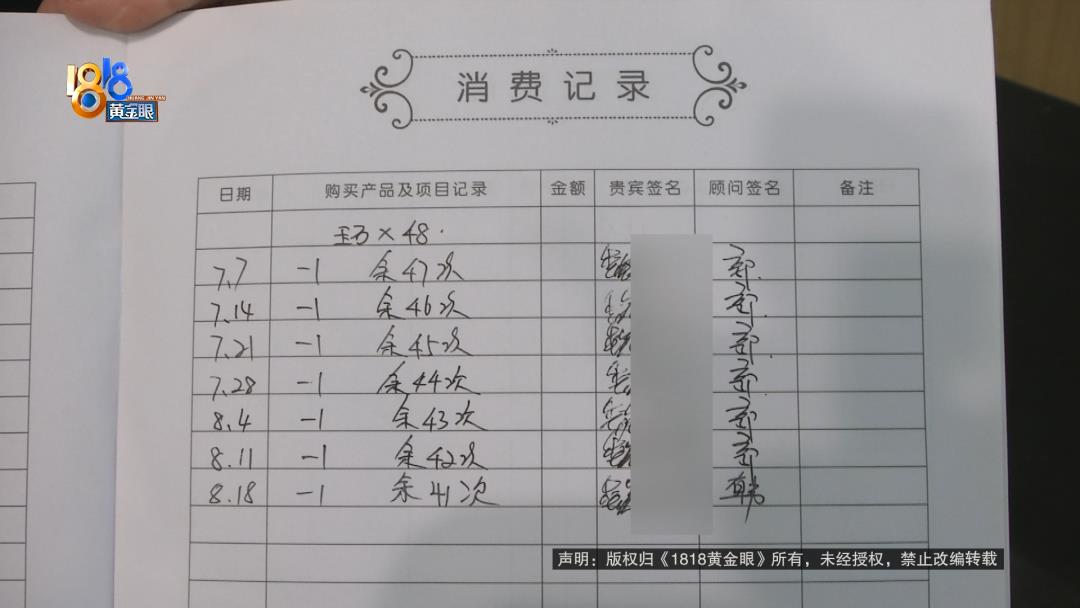 1818
HUANG JIN YAN
黄金眼
消费记录
日期 购买产品及项目记录 金额 贵宾签名 顾问签名 备注
× 48.
7.7 -1 余47次
7.14 -1 余46次
7.21 -1 余45次
7.28 -1 余44次
8.4 -1 余43次
8.11 -1 余42次
8.18 -1 余41次 韩
声明：版权归《1818黄金眼》所有，未经授权，禁止改编转载